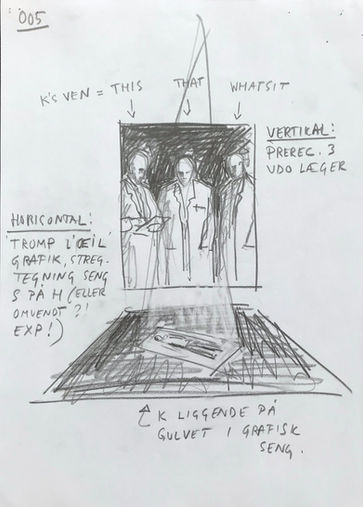 005
K'S VEN = THIS THAT WHATSIT
VERTIKAL:
PREREC. 3
UDO LÆGER
HORISONTAL:
'TROMP L'ŒIL'
GRAFIK, STREG-
TEGNING SENG
S PÅ H (ELLER
OMVENDT ?!
EXP!)
K LIGGENDE PÅ
GULVET I GRAFISK
SENG.